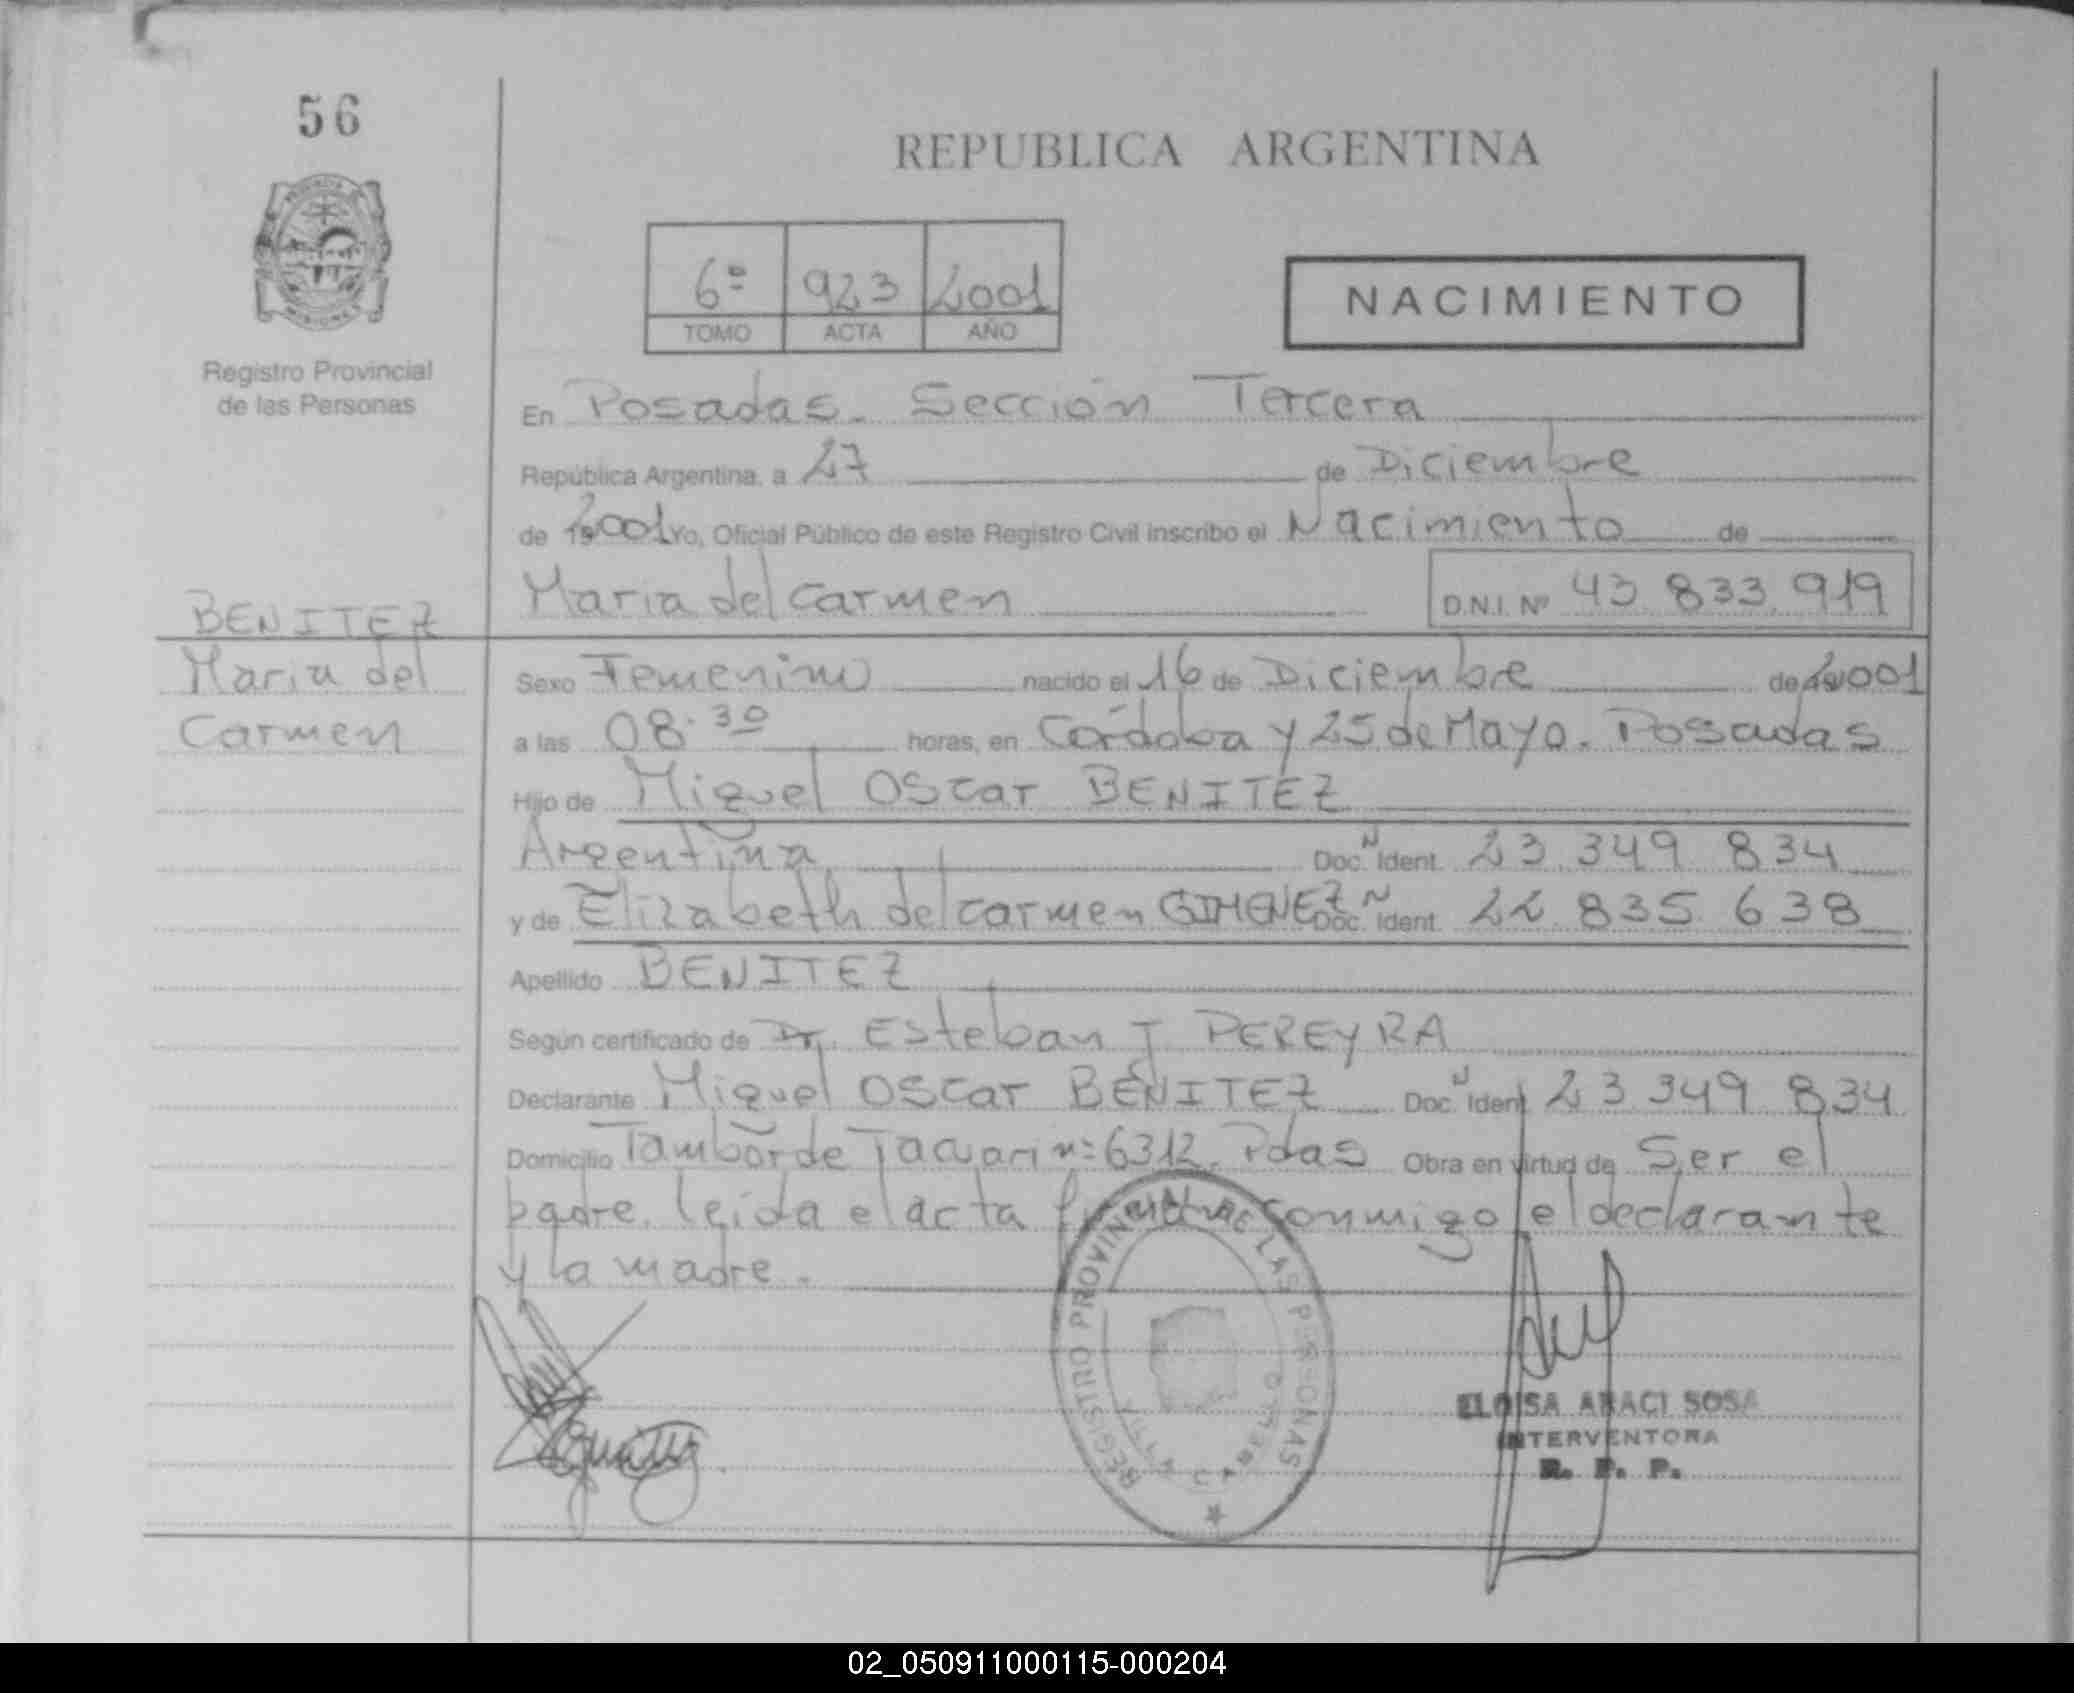 56
REPUBLICA ARGENTINA
6º 923 2001
TOMO ACTA AÑO
NACIMIENTO
Registro Provincial
de las Personas
En Posadas. Sección Tercera
República Argentina, a 27 de Diciembre
de 2001 Yo, Oficial Público de este Registro Civil inscribo el Nacimiento de
Maria del Carmen D.N.I. Nº 43 833 919
BENITEZ
Maria del
Carmen
Sexo Femenino nacido el 16 de Diciembre de 2001
a las 08.30 horas, en Córdoba y 25 de Mayo. Posadas
Hijo de Miguel Oscar BENITEZ
Argentina Doc. Ident. 23 349 834
y de Elizabeth del Carmen GIMENEZ Doc. Ident. 22 835 638
Apellido BENITEZ
Según certificado de Dr. Esteban J PEREYRA
Declarante Miguel Oscar BENITEZ Doc. Ident. 23 349 834
Domicilio Tambor de Tacuari nº 6312. Pdas Obra en virtud de Ser el
padre. leida el acta conmigo el declarante
y la madre.
REGISTRO PROVINCIAL DE LAS PERSONAS
VILLA CABELLO
ELOISA ARACI SOSA
INTERVENTORA
R. P. P.
02_050911000115-000204